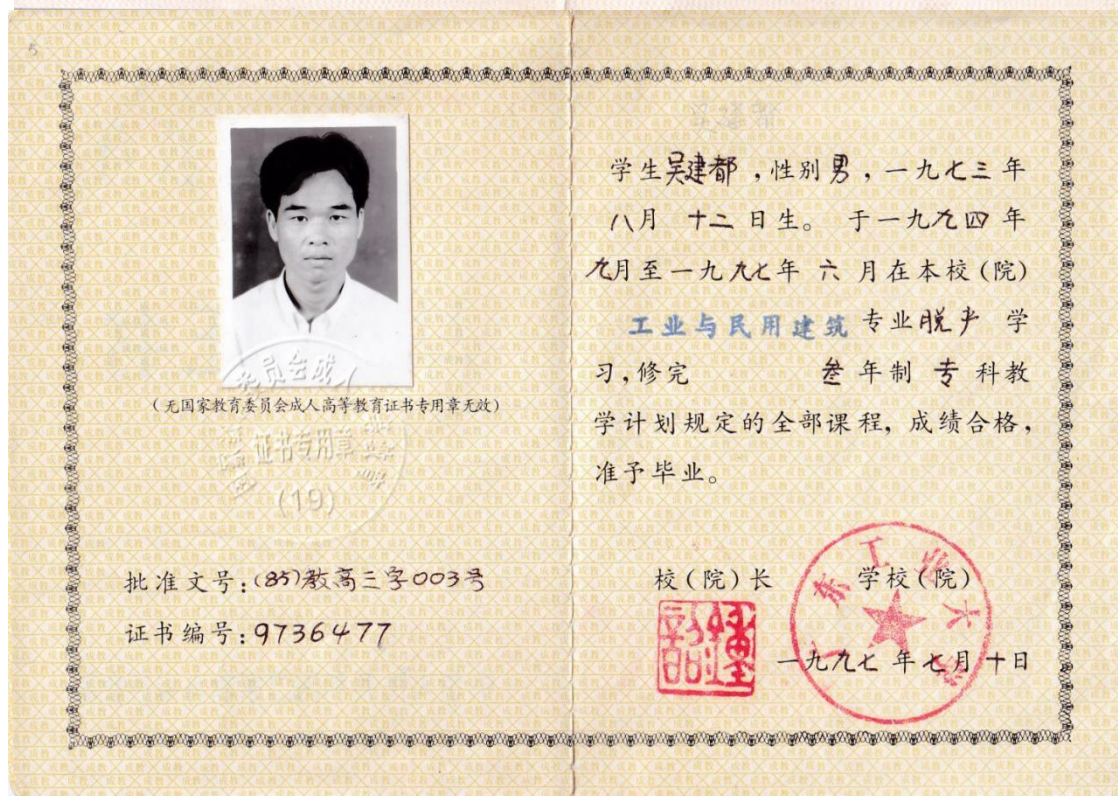 5
(无国家教育委员会成人高等教育证书专用章无效)
证书专用章
(19)
批准文号:(85)教高三字003号
证书编号:9736477
学生吴建都,性别男,一九七三年
八月 十二 日生。 于一九九四年
九月至一九九七年 六 月在本校(院)
工业与民用建筑 专业脱产 学
习,修完 叁 年制 专 科教
学计划规定的全部课程, 成绩合格,
准予毕业。
校(院)长 学校(院)
广东工业大学
一九九七 年七月十日